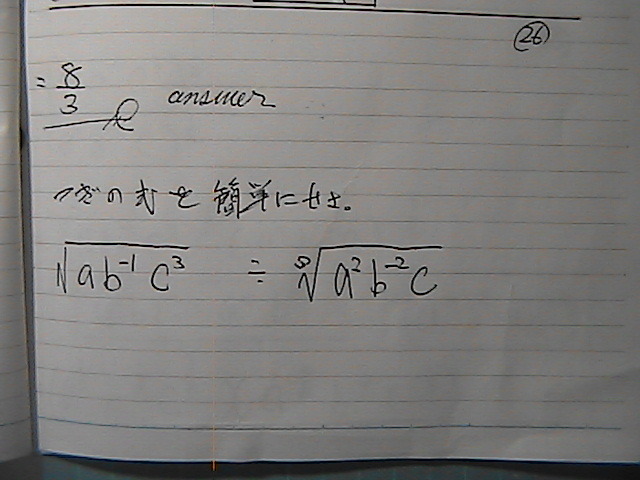 26
= 8/3 answer
つぎの式を簡単にせよ。
√(ab⁻¹c³) ÷ ∛(a²b⁻²c)